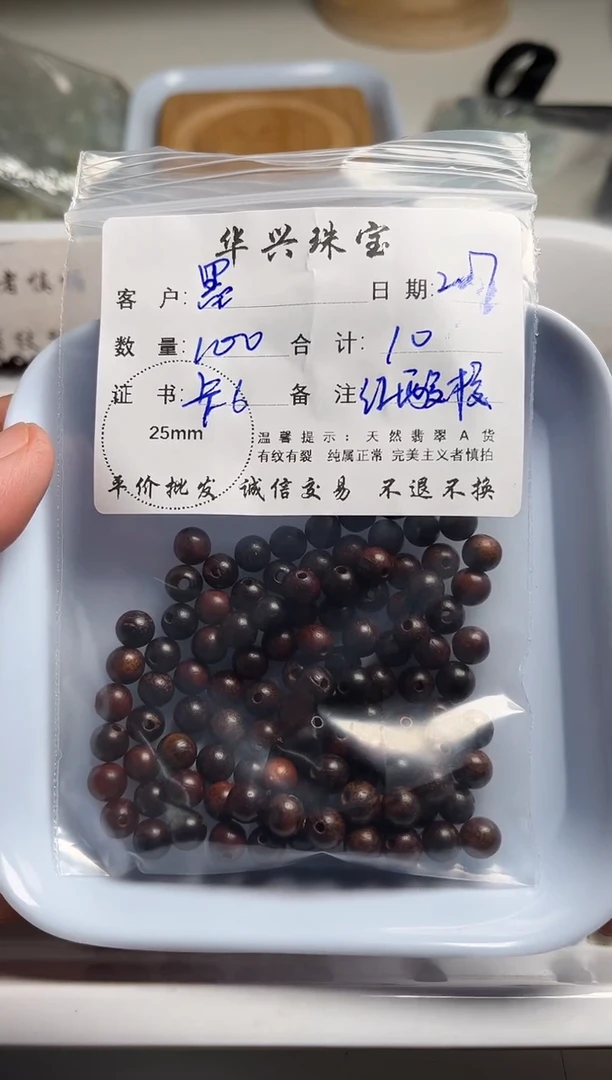 华兴珠宝
客 户: 黑 日 期:
数 量: 100 合 计: 10
证 书: 卡6 备 注 红酸枝
25mm
温馨提示: 天然翡翠A货
有纹有裂 纯属正常 完美主义者慎拍
平价批发 诚信交易 不退不换
者慎